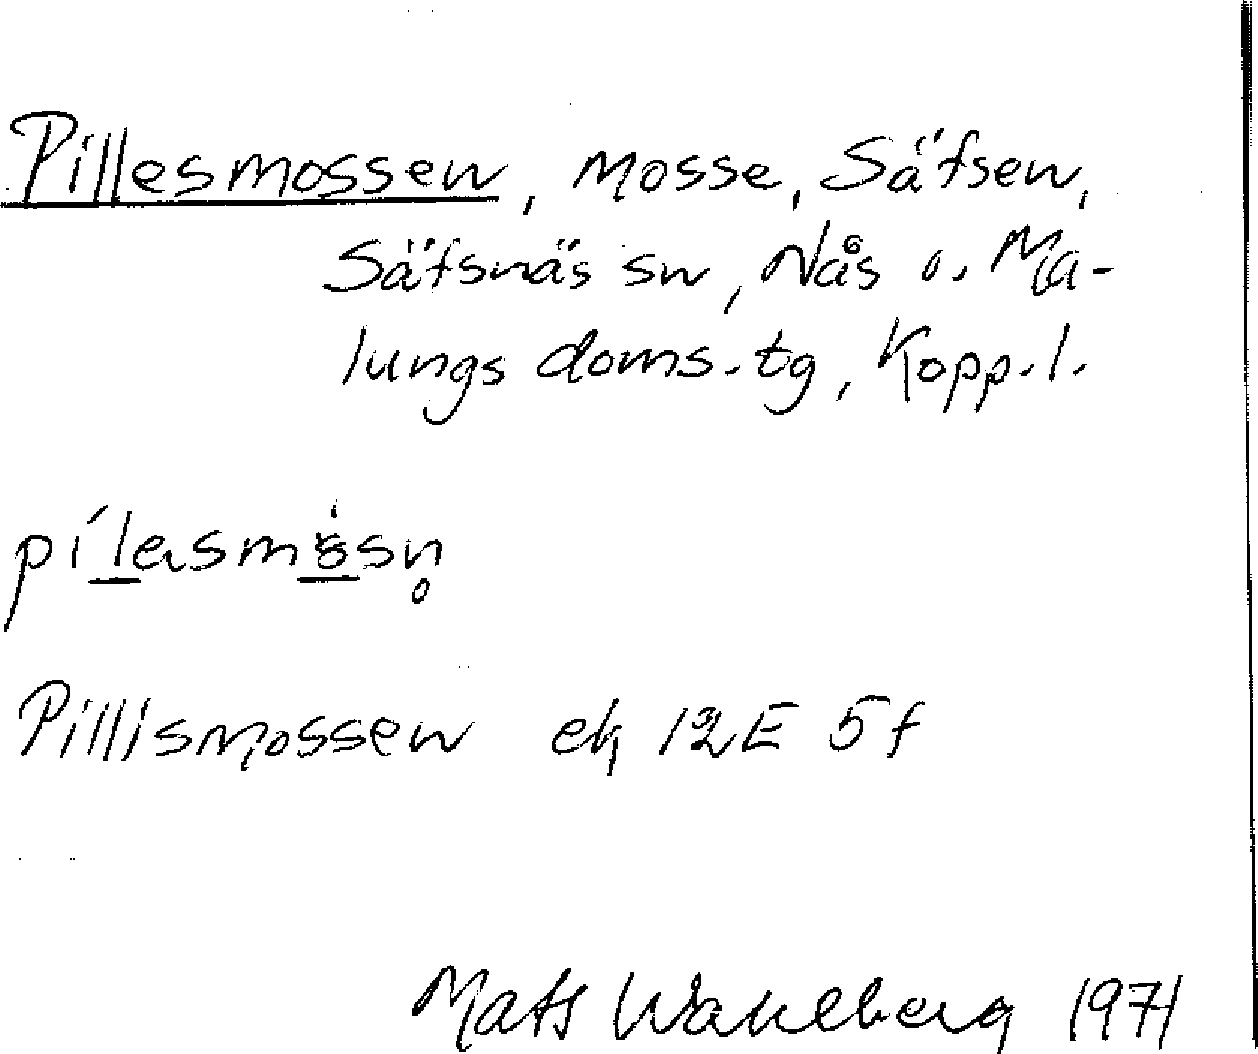 Pillesmossen, Mosse, Säfsen,
Säfsnäs sn, Nås o. Ma-
lungs doms.tg, Kopp.l.
pílasmö̀sn̥
Pillismossen ek 12E 5f
Mats Wahlberg 1971